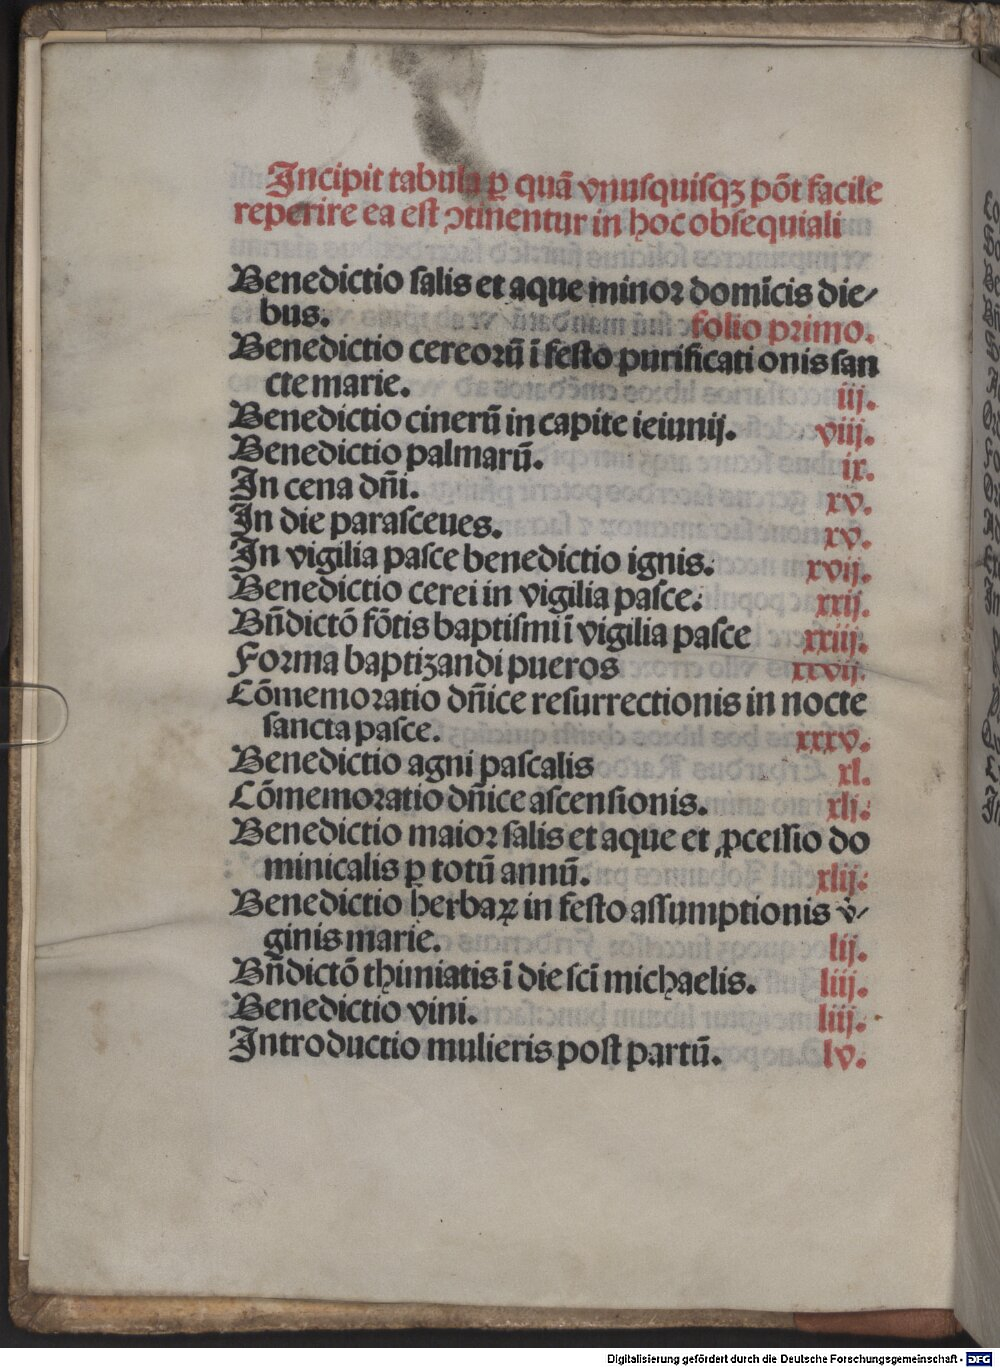 Incipit tabula ꝑ quā vnusquisqꝫ pōt facile
reperire ea est ↄtinentur in hoc obsequiali
Benedictio salis et aque minoꝛ domīcis die⸗
bus. folio primo.
Benedictio cereoꝛū ī festo purificati onis san
cte marie. iij.
Benedictio cinerū in capite ieiunij. viij.
Benedictio palmarū. ix.
In cena dn̄i. xv.
In die parasceues. xv.
In vigilia pasce benedictio ignis. xvij.
Benedictio cerei in vigilia pasce. xxij.
Bn̄dictō fōtis baptismi ī vigilia pasce xxiij.
Forma baptizandi pueros xxvij.
Cōmemoꝛatio dn̄ice resurrectionis in nocte
sancta pasce. xxxv.
Benedictio agni pascalis xl.
Cōmemoꝛatio dn̄ice ascensionis. xlj.
Benedictio maioꝛ salis et aque et ꝓcessio do
minicalis ꝑ totū annū. xlij.
Benedictio herbaꝝ in festo assumptionis v̇⸗
ginis marie. lij.
Bn̄dictō thimiatis ī die scī michaelis. liij.
Benedictio vini. liij.
Introductio mulieris post partū. lv.
Digitalisierung gefördert durch die Deutsche Forschungsgemeinschaft - DFG